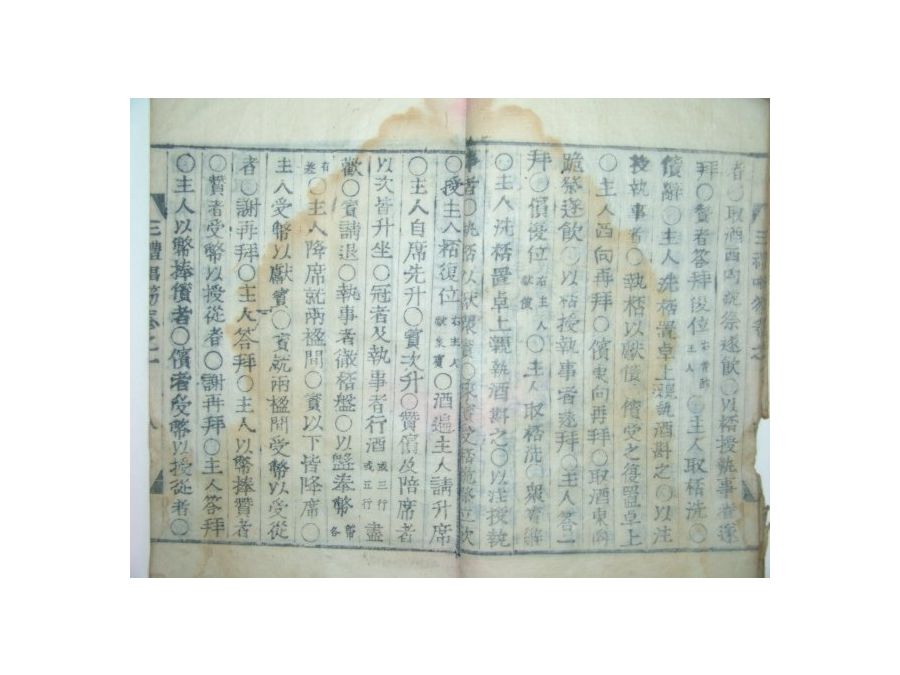 者○取酒西向跪祭遂飲○以栝授執事者遂
拜○賛者答拜復位○主人取栝洗○
儐辭○主人洗栝置卓上親執酒斟之○以注
授執事者○執栝以獻儐○儐受之復置卓上
○主人西向再拜○儐東向再拜○取酒東向
跪祭遂飲○以栝授執事者遂拜○主人答
拜○儐復位 右主人獻儐 ○主人取栝洗○衆賓辭
○主人洗栝置卓上親執酒斟之○以注授執
事者○執栝以獻衆賓○受栝跪祭立飲
○授主人栝復位 右主人獻衆賓 ○酒遍主人請升席
○主人自席先升○賓次升○賛儐及陪席者
以次皆升坐○冠者及執事者行酒 或三行或五行 盡
歡○賓請退○執事者徹栝盤○以盤奉幣 幣各
有差 ○主人降席就兩楹間○賓以下皆降席○
主人受幣以獻賓○賓就兩楹間受幣以受從
者○謝再拜○主人答拜○主人以幣捧賛者
○賛者受幣以授從者○謝再拜○主人答拜
○主人以幣捧儐者○儐者受幣以授從者○
三禮
卷之一
八